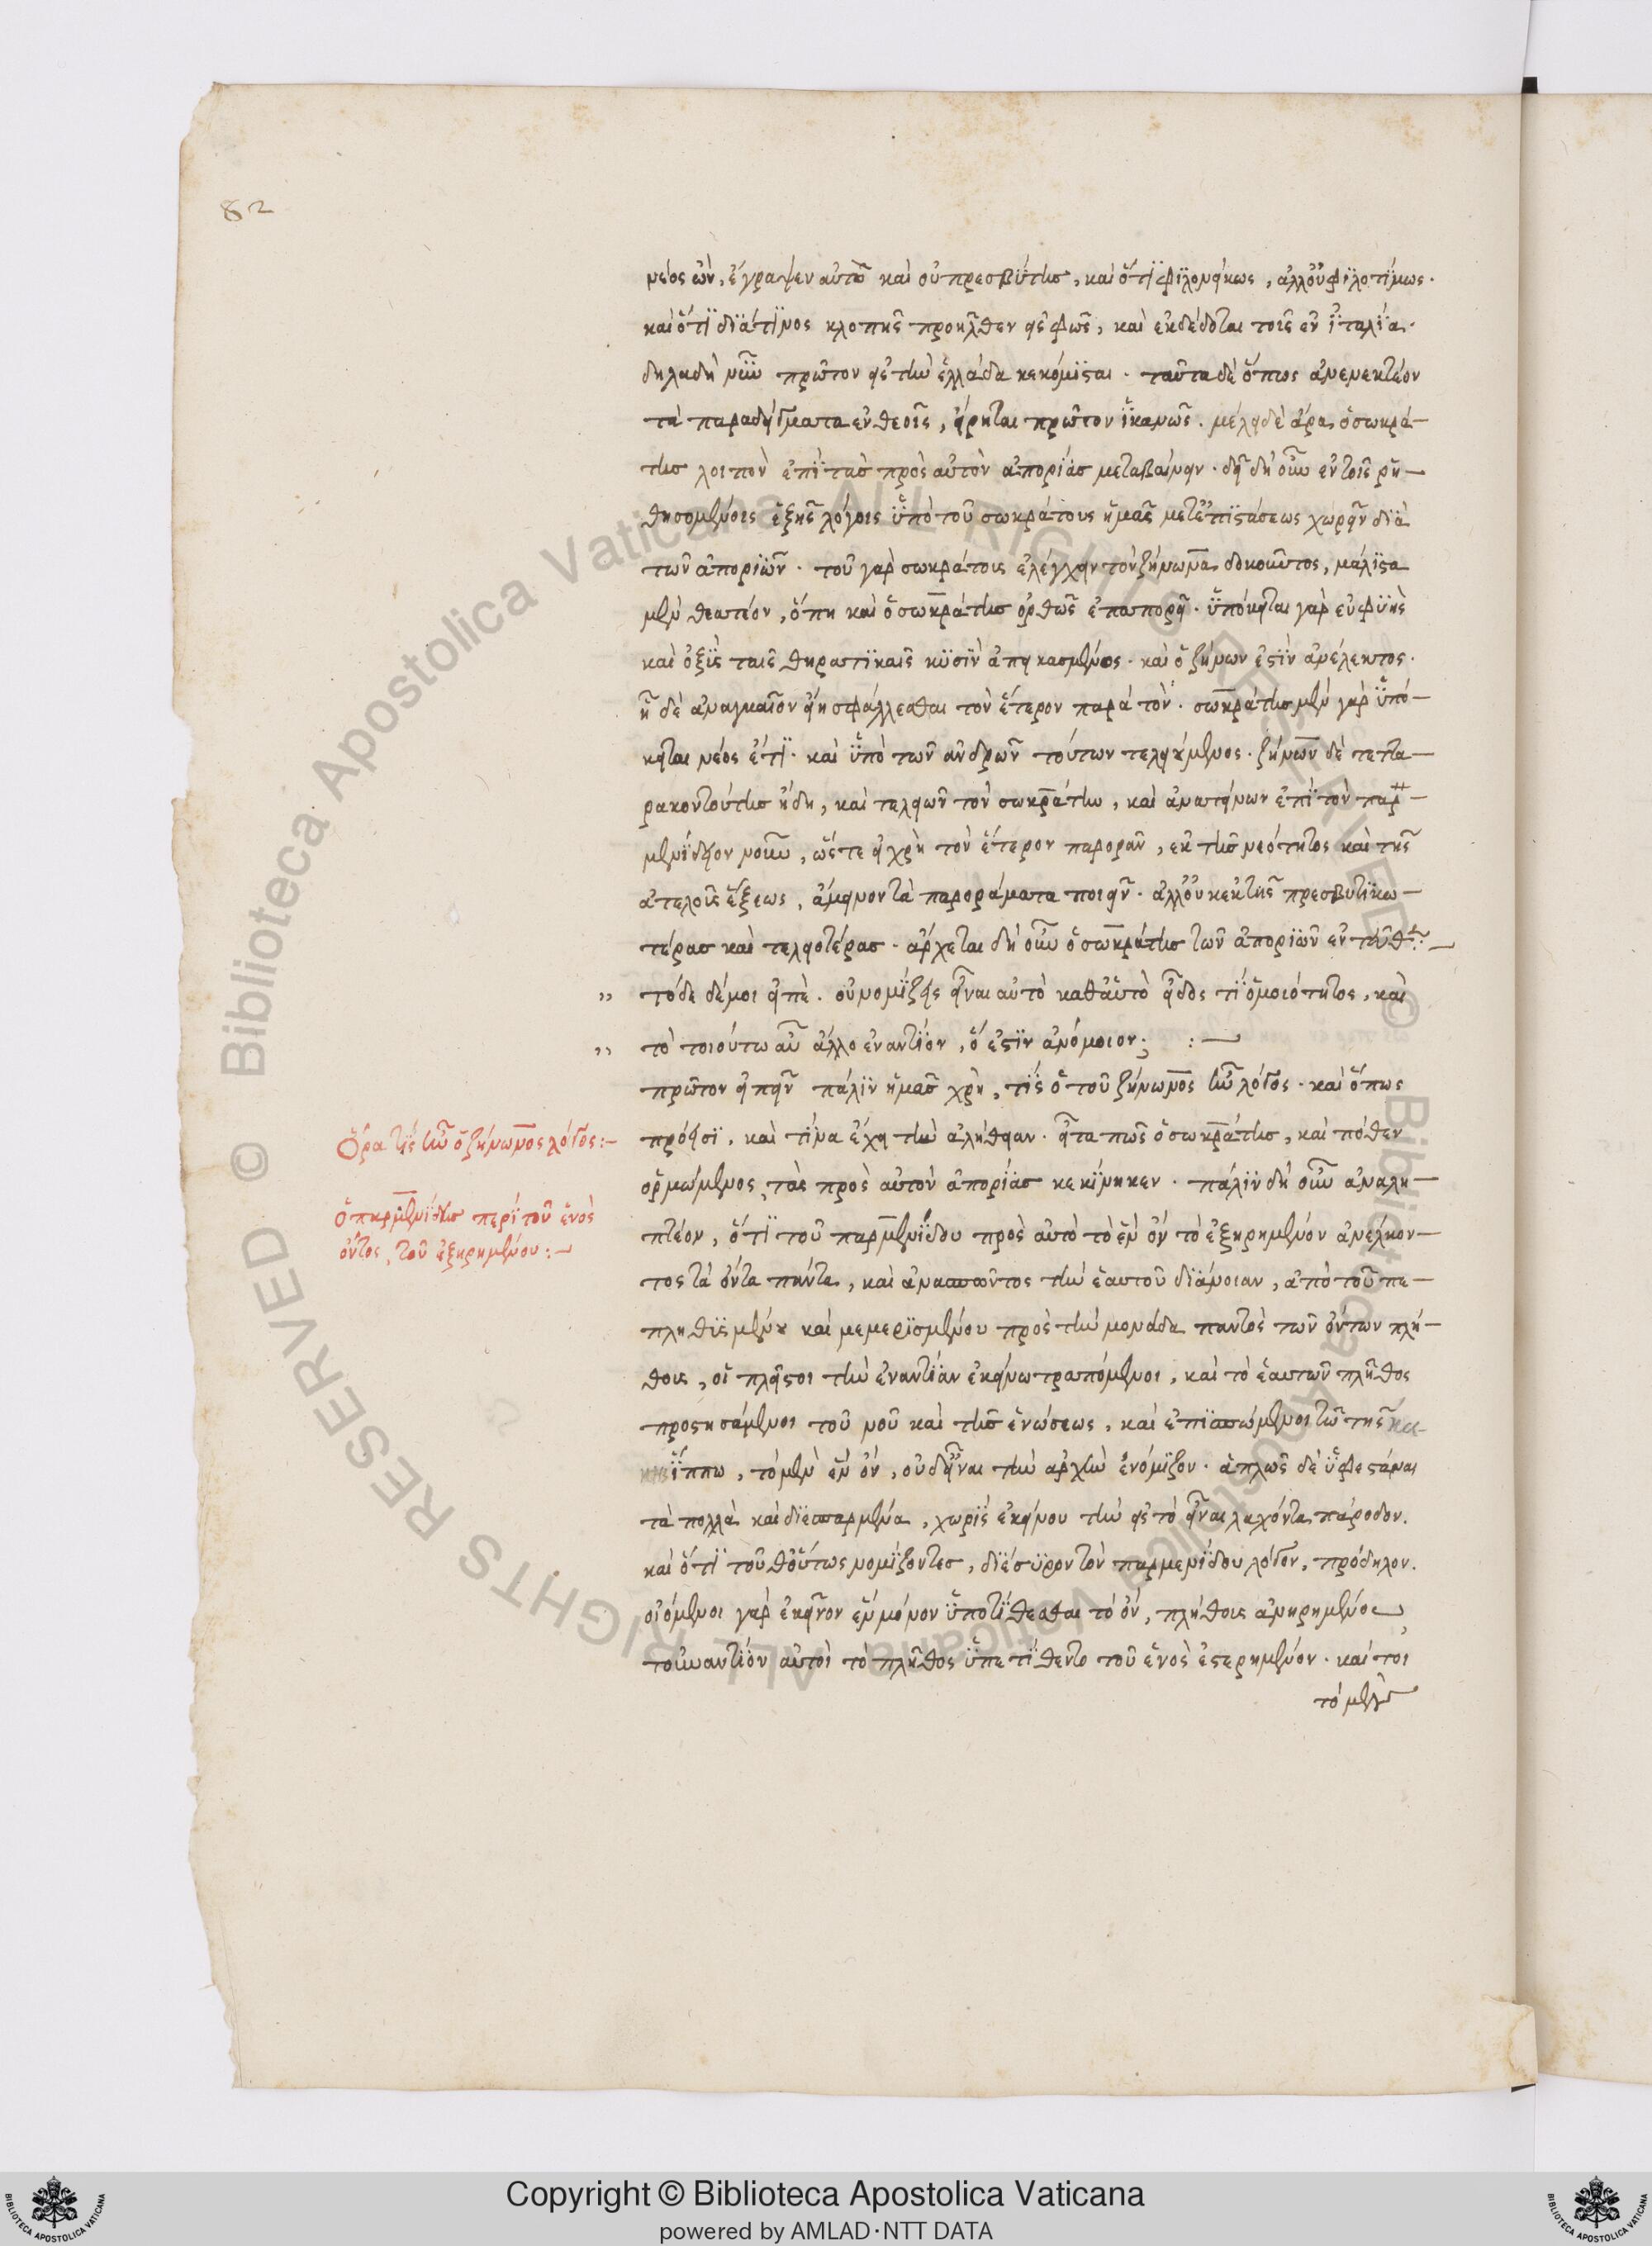 82
νέος ὢν, ἔγραψεν αὐτὸ καὶ οὐ πρεσβύτης, καὶ ὅτι φιλονείκως, ἀλλ' οὐ φιλοτίμως.
καὶ ὅτι διά τινος κλοπῆς προῆλθεν εἰς φῶς, καὶ ἐκδέδοται τοῖς ἐν ἰταλία.
δηλαδὴ νῦν πρῶτον εἰς τὴν ἑλλάδα κεκόμισται. ταῦτα δὲ ὅπως ἀνενεκτέον
τὰ παραδείγματα ἐν θεοῖς, εἴρηται πρῶτον ἱκανῶς. μέλει δὲ ἄρα ὁ σωκρά-
της λοιπὸν ἐπὶ τὰς πρὸς αὐτὸν ἀπορίας μεταβαίνειν. δεῖ δὴ οὖν ἐν τοῖς ῥη-
θησομένοις ἑξῆς λόγοις ὑπὸ τοῦ σωκράτους ἡμᾶς μετ' ἐπιστάσεως χωρεῖν διὰ
τῶν ἀποριῶν. τοῦ γὰρ σωκράτους ἐλέγχειν τὸν ζήνωνα δοκοῦντος, μάλιστα
μὲν θεατέον, ὅπη καὶ ὁ σωκράτης ὀρθῶς ἐπαπορεῖ. ὑπόκειται γὰρ εὐφυὴς
καὶ ὀξὺς ταῖς θηρατικαῖς κυσὶν ἀπεικασμένος. καὶ ὁ ζήνων ἐστὶν ἀνέλεκτος.
ἢ δὲ ἀναγκαῖον εἴη σφάλλεσθαι τὸν ἕτερον παρὰ τὸν. σωκράτης μὲν γὰρ ὑπό-
κειται νέος ἔτι. καὶ ὑπὸ τῶν ἀνδρῶν τούτων τελειούμενος. ζήνων δὲ τεττα-
ρακοντούτης ἤδη, καὶ τελειῶν τὸν σωκράτην, καὶ ἀνατείνων ἐπὶ τὸν παρ-
μενίδειον νοῦν, ὥστε εἰ χρὴ τὸν ἕτερον παρορᾶν, ἐκ τῆς νεότητος καὶ τῆς
ἀτελοῦς ἕξεως, ἄμεινον τὰ παροράματα ποιεῖν. ἀλλ' οὐκ ἐκ τῆς πρεσβυτικω-
τέρας καὶ τελειοτέρας. ἄρχεται δὴ οὖν ὁ σωκράτης τῶν ἀποριῶν ἐντεῦθ:-
τόδε δέ μοι εἰπὲ. οὐ νομίζεις εἶναι αὐτὸ καθ' αὑτὸ εἶδος τι ὁμοιότητος, καὶ
τὸ τοιούτω αὖ ἄλλο ἐναντίον, ὅ ἐστιν ἀνόμοιον; :-
πρῶτον εἰπεῖν πάλιν ἡμᾶς χρὴ, τίς ὁ τοῦ ζήνωνος ἦν λόγος. καὶ ὅπως
πρόεισι, καὶ τίνα ἔχει τὴν ἀλήθειαν. εἶτα πῶς ὁ σωκράτης, καὶ πόθεν
ὁρμώμενος, τὰς πρὸς αὐτὸν ἀπορίας κεκίνηκεν. πάλιν δὴ οὖν ἀναλη-
πτέον, ὅτι τοῦ παρμενίδου πρὸς αὐτὸ τὸ ἓν ὂν τὸ ἐξηρημένον ἀνέλκον-
τος τὰ ὄντα πάντα, καὶ ἀνασπῶντος τὴν ἑαυτοῦ διάνοιαν, ἀπὸ τοῦ πε-
πληθυσμένου καὶ μεμερισμένου πρὸς τὴν μονάδα παντὸς τῶν ὄντων πλή-
θους, οἱ πλεῖστοι τὴν ἐναντίαν ἐκείνω τραπόμενοι, καὶ τὸ ἑαυτῶν πλῆθος
προστησάμενοι τοῦ νοῦ καὶ τῆς ἑνώσεως, καὶ ἐπισπώμενοι τῶ τῆς
ἵππω, τὸ μὲν ἓν ὂν, οὐδ' εἶναι τὴν ἀρχὴν ἐνόμιζον. ἁπλῶς δὲ ὑφεστάναι
τὰ πολλὰ καὶ διεσπαρμένα, χωρὶς ἐκείνου τὴν εἰς τὸ εἶναι λαχόντα πάροδον.
καὶ ὅτι τοῦθ' οὕτως νομίζοντες, διέσυρον τὸν παρμενίδου λόγον, πρόδηλον.
οἰόμενοι γὰρ ἐκεῖνον ἓν μόνον ὑποτίθεσθαι τὸ ὂν, πλήθους ἀνηρημένου,
τοὐναντίον αὐτοὶ τὸ πλῆθος ὑπετίθεντο τοῦ ἑνὸς ἐστερημένον. καίτοι
τὸ μὲν
Ὅρα τίς ἦν ὁ ζήνωνος λόγος:-
ὁ παρμενίδης περὶ τοῦ ἑνὸς
ὄντος, τοῦ ἐξηρημένου:-
Copyright © Biblioteca Apostolica Vaticana
powered by AMLAD·NTT DATA
© Biblioteca Apostolica Vaticana ALL RIGHTS RESERVED
© Biblioteca Apostolica Vaticana ALL RIGHTS RESERVED
BIBLIOTECA APOSTOLICA VATICANA
BIBLIOTECA APOSTOLICA VATICANA